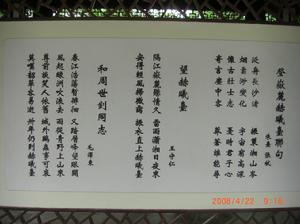 登嶽麓赫曦臺聯句
朱熹 張栻
泛舟長沙渚 振策湘山岑
烟雲渺變化 宇宙窮高深
懷古壯士志 憂時君子心
寄言塵中客 莽蒼誰能尋
望赫曦臺
王守仁
隔江嶽麓懸情久 雷雨瀟湘日夜來
安得輕風掃微靄 振衣直上赫曦臺
和周世釗同志
毛澤東
春江浩蕩暫徘徊 又踏層峰望眼開
風起綠洲吹浪去 雨從青野上山來
尊前談笑人依舊 域外雞蟲事可哀
莫嘆韶華容易逝 卅年仍到赫曦臺
2008/4/22 9:16